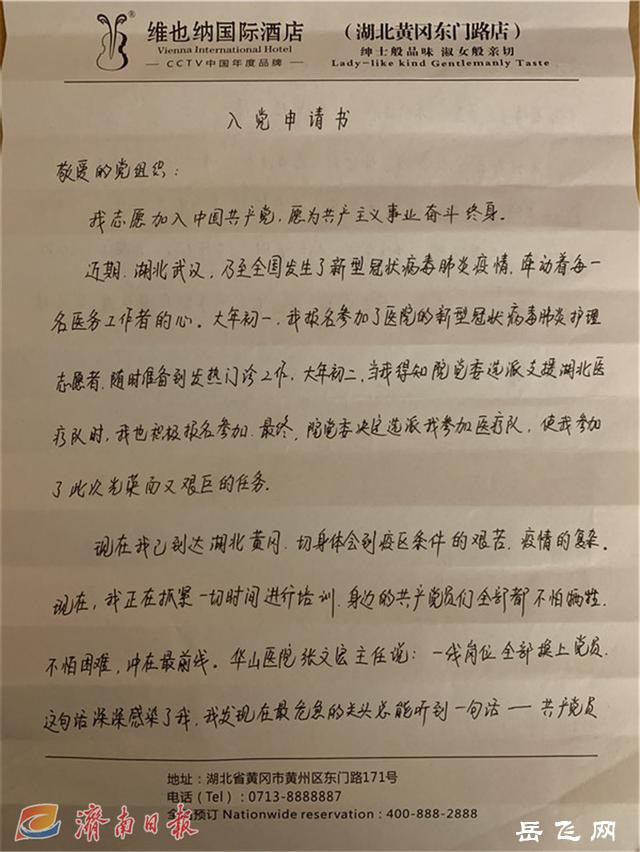 维也纳国际酒店
Vienna International Hotel
CCTV中国年度品牌
(湖北黄冈东门路店)
绅士般品味 淑女般亲切
Lady-like kind Gentlemanly Taste
入党申请书
敬爱的党组织:
我志愿加入中国共产党,愿为共产主义事业奋斗终身。
近期,湖北武汉,乃至全国发生了新型冠状病毒肺炎疫情,牵动着每一
名医务工作者的心。大年初一,我报名参加了医院的新型冠状病毒肺炎护理
志愿者,随时准备到发热门诊工作,大年初二,当我得知院党委选派支援湖北医
疗队时,我也积极报名参加,最终,院党委决定选派我参加医疗队,使我参加
了此次光荣而又艰巨的任务。
现在我已到达湖北黄冈,切身体会到疫区条件的艰苦,疫情的复杂。
现在,我正在抓紧一切时间进行培训,身边的共产党员们全部都不怕牺牲,
不怕困难,冲在最前线。华山医院张文宏主任说:一线岗位全部换上党员,
这句话深深感染了我,我发现在最危急的关头总能听到一句话——共产党员
地址:湖北省黄冈市黄州区东门路171号
电话(Tel):0713-8888887
预订Nationwide reservation:400-888-2888
济南日报
岳飞网